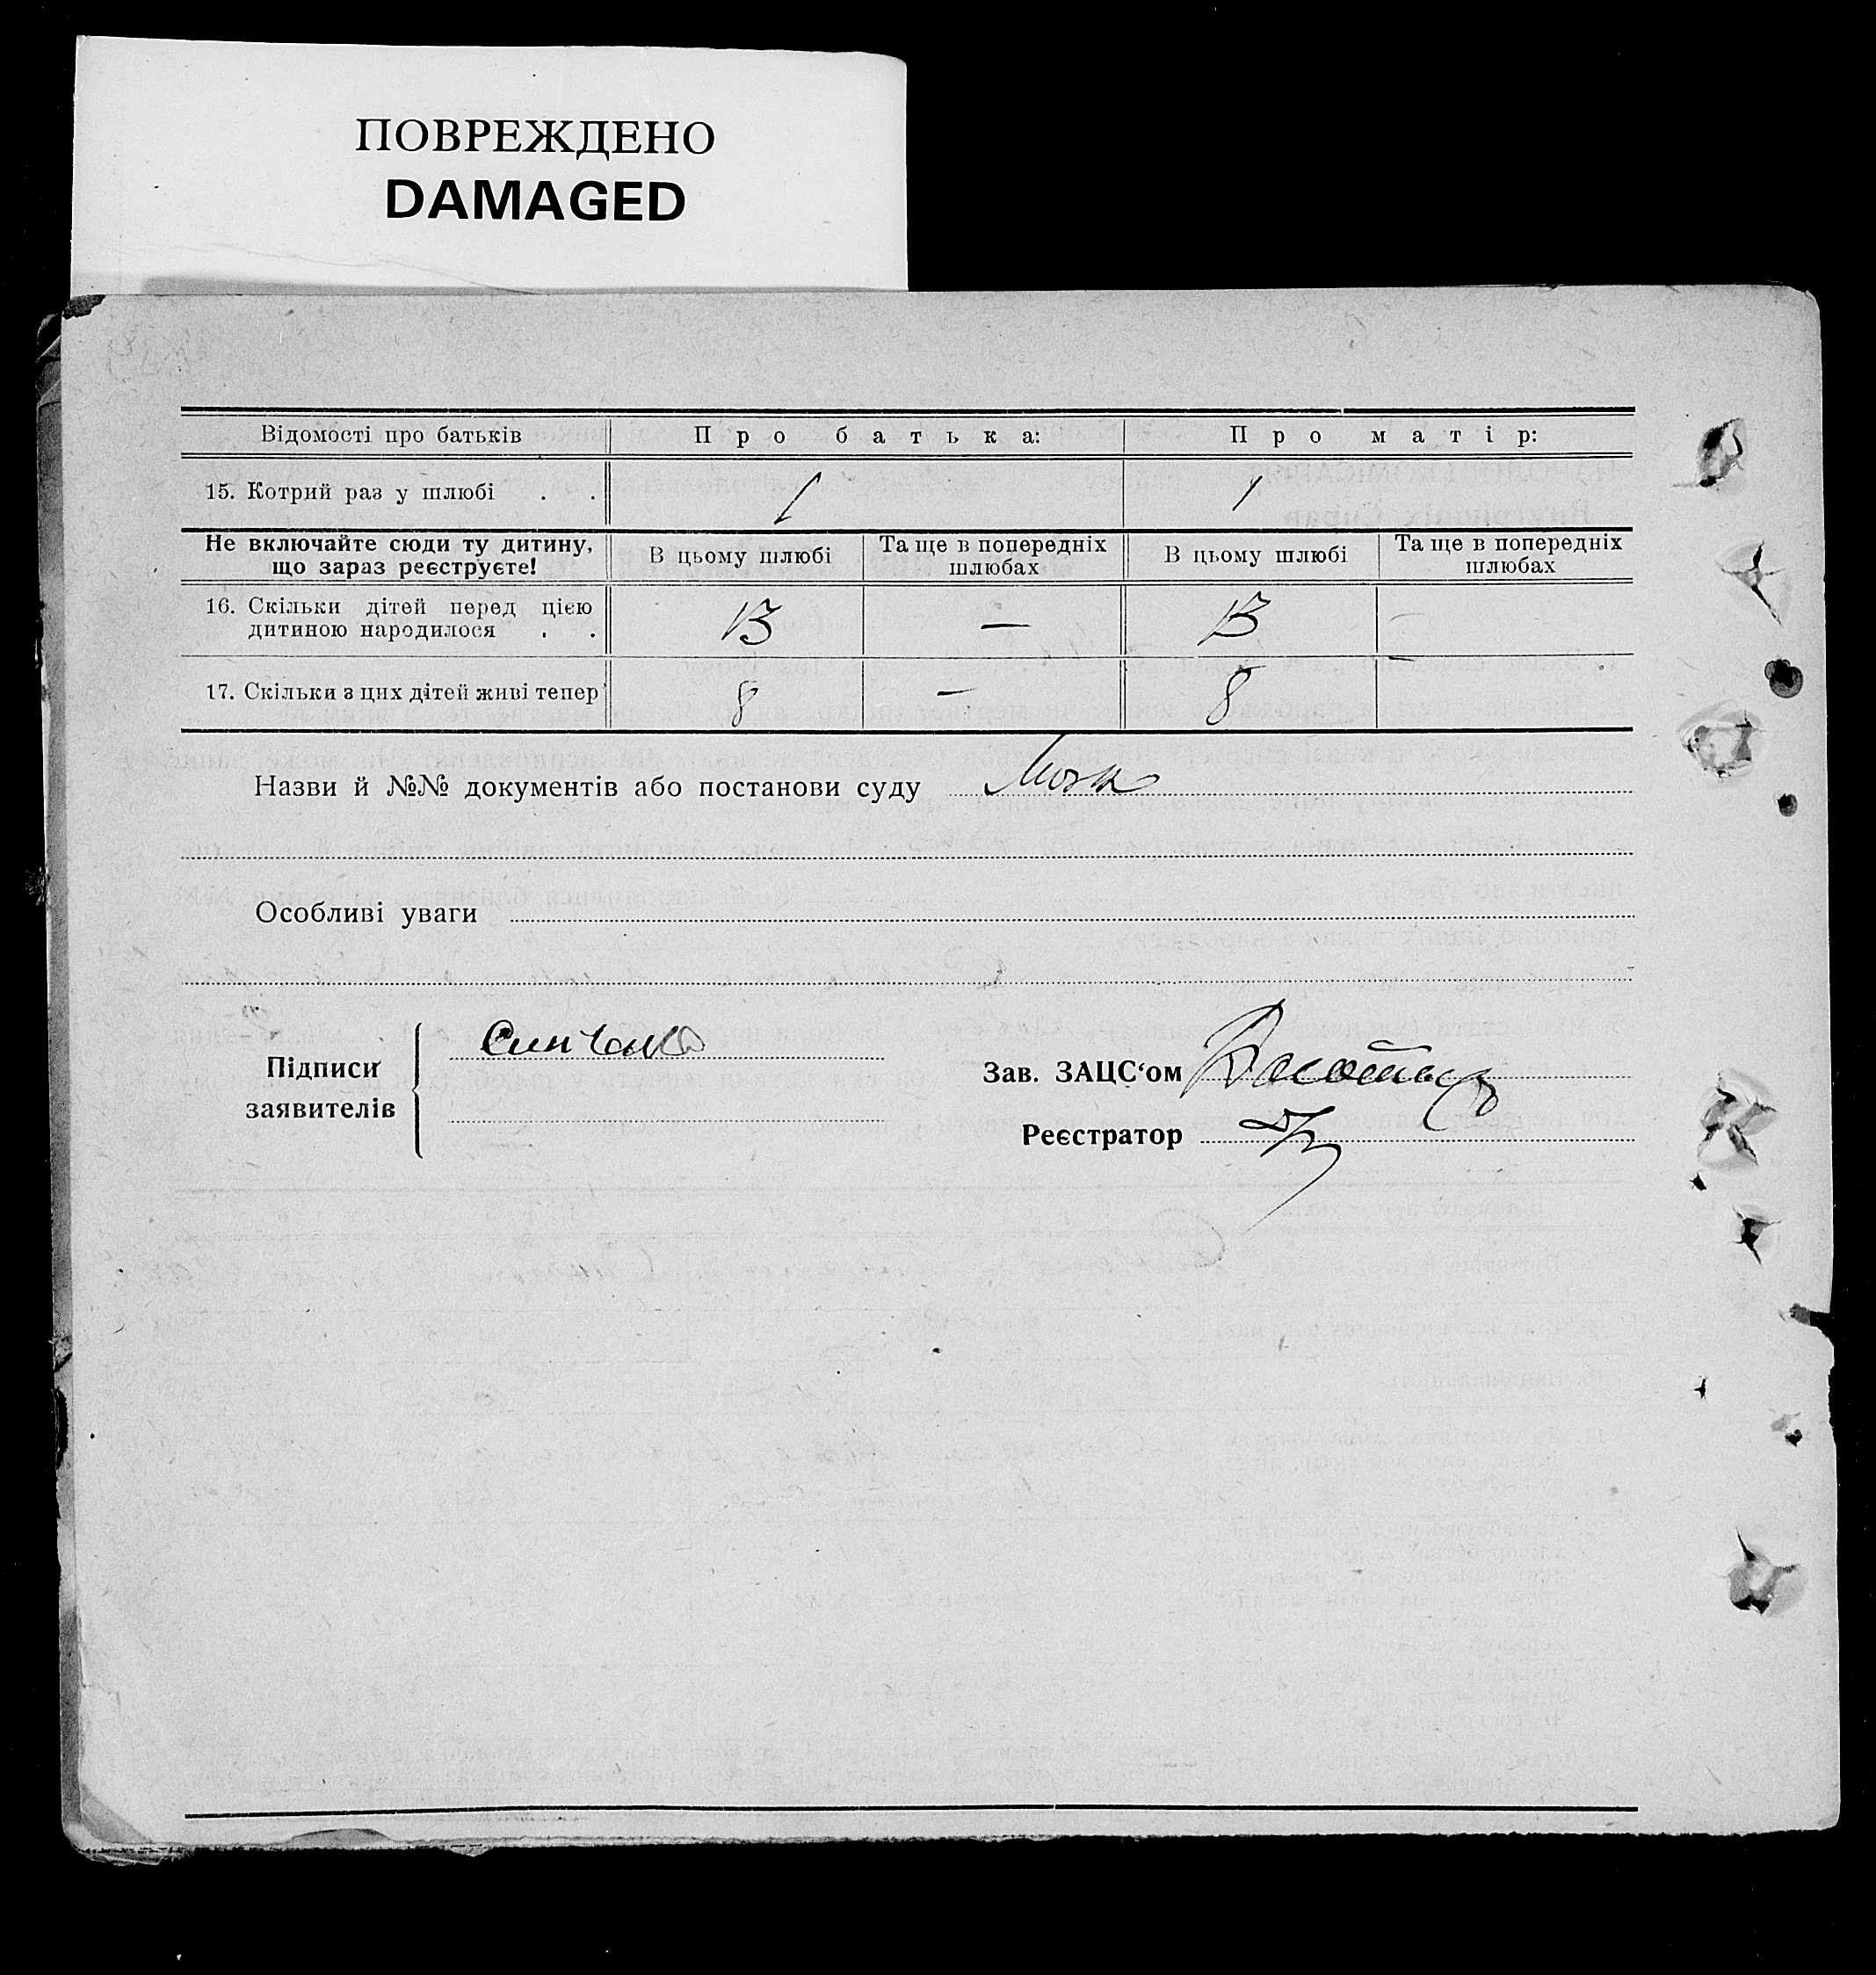 ПОВРЕЖДЕНО
DAMAGED
Відомості про батьків Про батька: Про матір:
15. Котрий раз у шлюбі . . 1 1
Не включайте сюди ту дитину, що зараз реєструєте! В цьому шлюбі Та ще в попередніх шлюбах В цьому шлюбі Та ще в попередніх шлюбах
16. Скільки дітей перед цією
дитиною народилося . . 13 — 13 —
17. Скільки з цих дітей живі тепер 8 — 8 —
Назви й №№ документів або постанови суду
Особливі уваги
Підписи
заявителів
Зав. ЗАЦС‘ом
Реєстратор